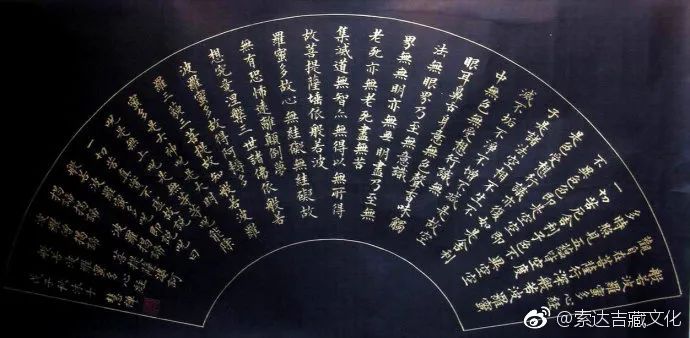 般若波羅蜜多心經
觀自在菩薩行深般若波羅蜜
多時照見五蘊皆空度
一切苦厄舍利子色不異空空
不異色色即是空空即
是色受想行識亦復如是舍利
子是諸法空相不生不
滅不垢不淨不增不減是故空
中無色無受想行識無
眼耳鼻舌身意無色聲香味觸
法無眼界乃至無意識
界無無明亦無無明盡乃至無
老死亦無老死盡無苦
集滅道無智亦無得以無所得
故菩提薩埵依般若波
羅蜜多故心無罣礙無罣礙故
無有恐怖遠離顛倒夢
想究竟涅槃三世諸佛依般若
波羅蜜多故得阿耨多
羅三藐三菩提故知般若波羅
蜜多是大神咒是大明
咒是無上咒是無等等咒能除
一切苦真實不虛故
@索达吉藏文化